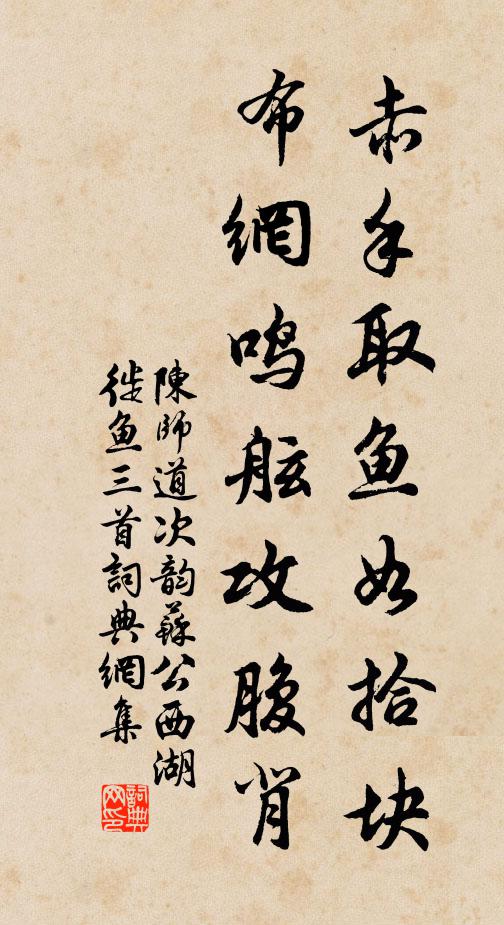 赤手取鱼如拾块
布網鸣舷攻腹背
陳師道次韵蘇公西湖
徙鱼三首詞典網集
詞典网印